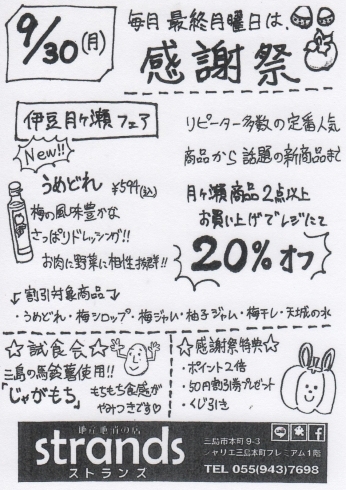 9/30(月)
毎月最終月曜日は、
感謝祭
伊豆月ヶ瀬フェア
New!!
うめどれ ¥594(税込)
梅の風味豊かな
さっぱりドレッシング!!
お肉に野菜に相性抜群!!
リピーター多数の定番人気
商品から話題の新商品まで
月ヶ瀬商品2点以上
お買い上げでレジにて
20%オフ
割引対象商品
・うめどれ・梅シロップ・梅ジャム・柚子ジャム・梅干し・天城の水
☆試食会☆
三島の馬鈴薯使用!!
「じゃがもち」
もちもち食感が
やみつきです♡
☆感謝祭特典☆
・ポイント2倍
・50円割引券プレゼント
・くじ引き
地産地消の店
strands
ストランズ
三島市本町9-3
シャリエ三島本町プレミアム1階
TEL 055(943)7698